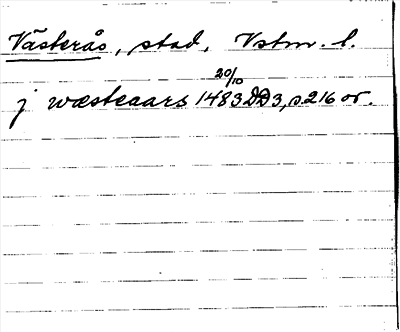 Västerås, stad, Vstm. l.
j wæsteaars 1483 20/10 DD3, s. 216 or.